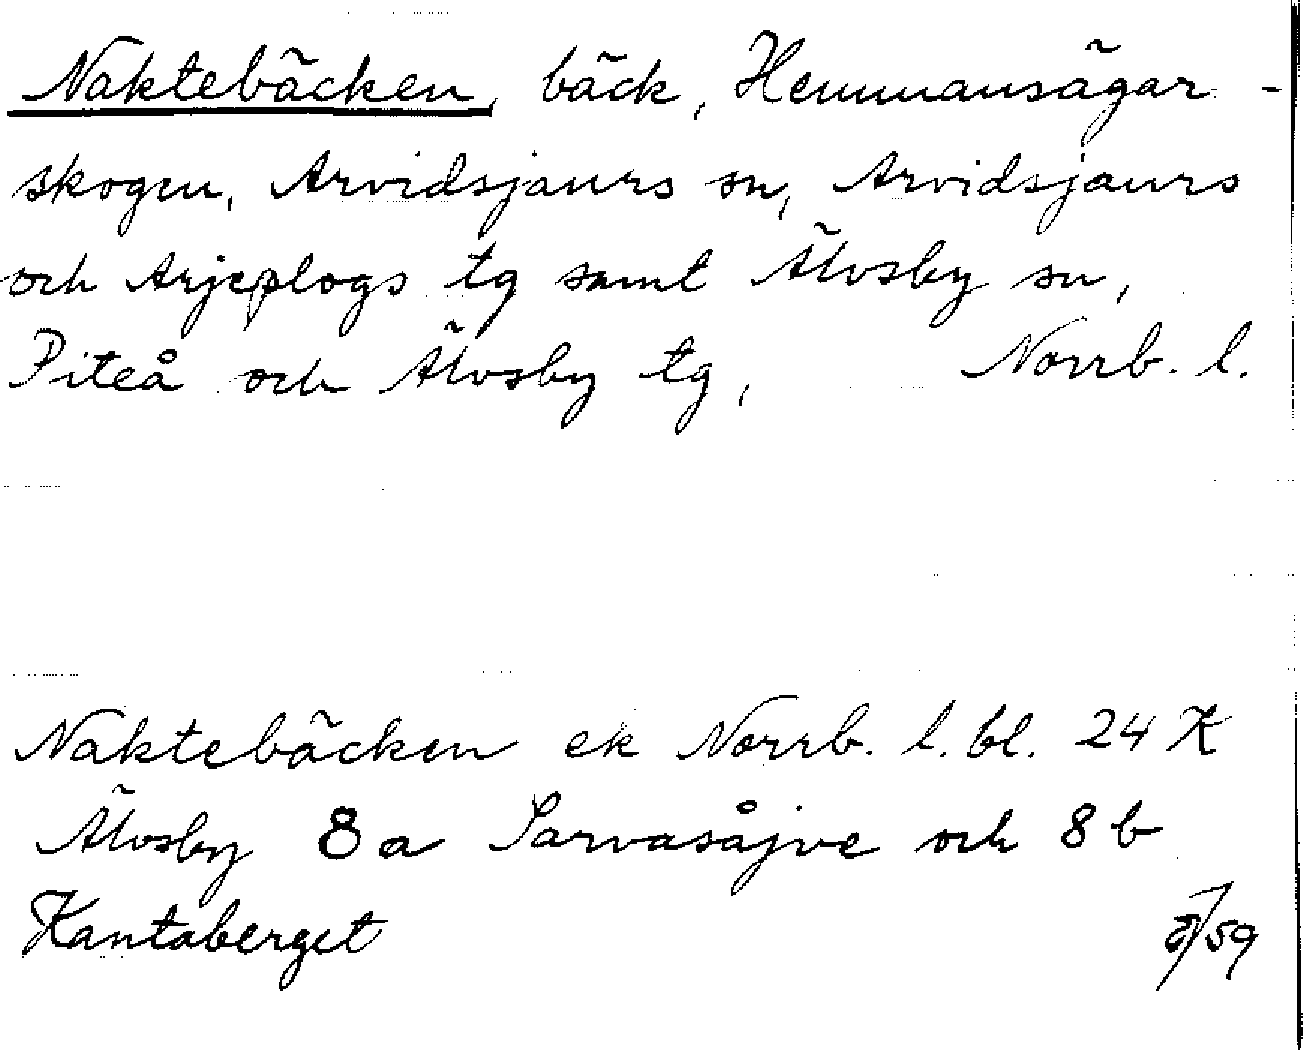 Naktebäcken, bäck, Hemmansägar-
skogen, Arvidsjaurs sn, Arvidsjaurs
och Arjeplogs tg samt Älvsby sn,
Piteå och Älvsby tg, Norrb. l.
Naktebäcken ek Norrb. l. bl. 24 K
Älvsby 8a Sarvasåjve och 8b
Kantaberget